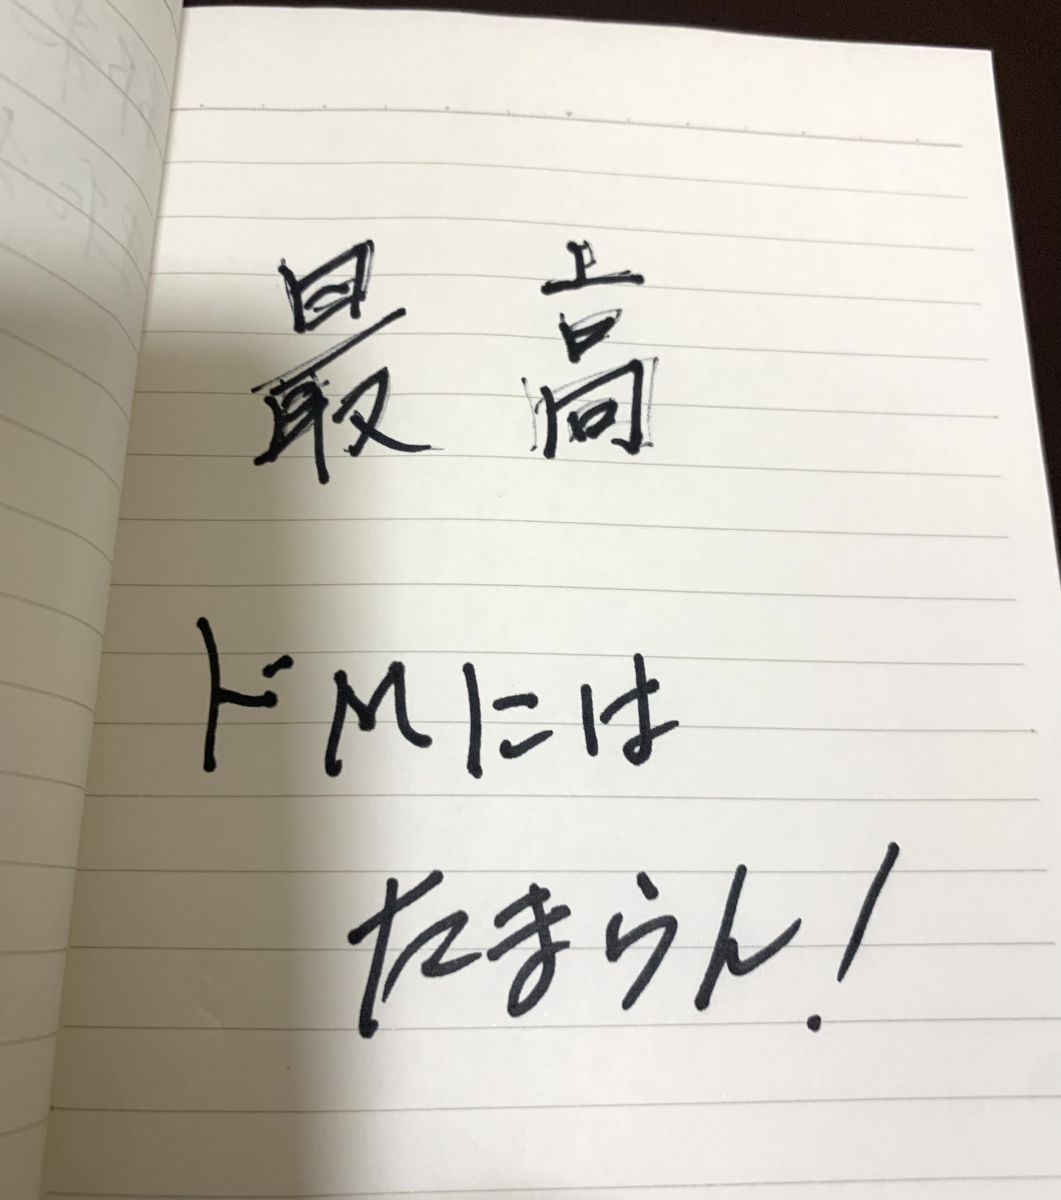 最高
ドMには
たまらん!